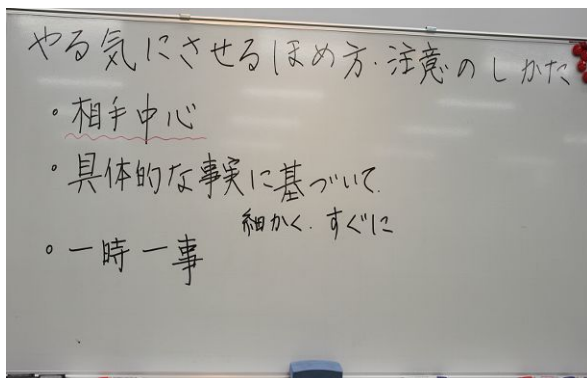 やる気にさせるほめ方・注意のしかた
・相手中心
・具体的な事実に基づいて.
細かく.すぐに
・一時一事